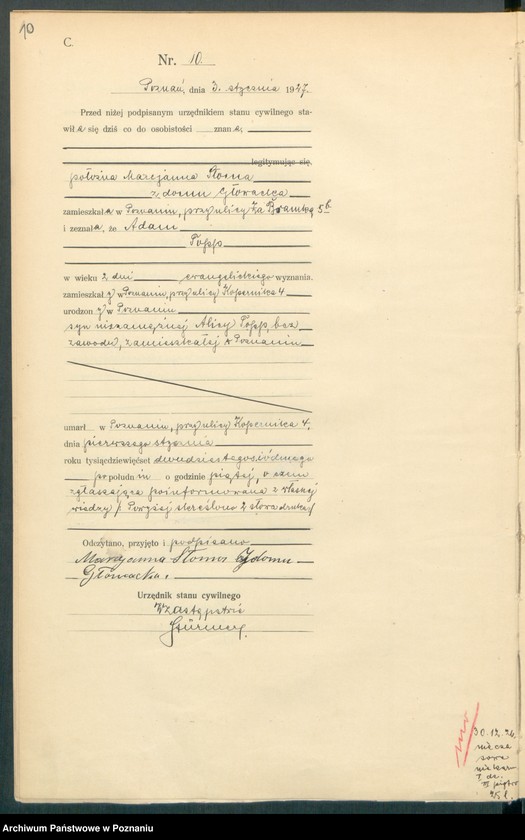 10
C.
Nr. 10.
Poznań, dnia 3. stycznia 1927.
Przed niżej podpisanym urzędnikiem stanu cywilnego sta-
wiła się dziś co do osobistości znana,
legitymując się.
położna Marcjanna Słoma
z domu Głowacka
zamieszkała w Poznaniu, przy ulicy Za Bramką 5b
i zeznała, że Adam
Popp
w wieku 2 dni ewangelickiego wyznania.
zamieszkały w Poznaniu, przy ulicy Kopernika 4
urodzony w Poznaniu
syn niezamężnej Alicy Popp, bez
zawodu, zamieszkałej w Poznaniu
umarł w Poznaniu, przy ulicy Kopernika 4,
dnia pierwszego stycznia
roku tysiącdziewięćset dwudziestego siódmego
po południu o godzinie piątej, o czem
zgłaszająca poinformowana z własnej
wiedzy / Powyżej skreślono 2 słowa druku /
Odczytano, przyjęto i podpisano
Marcjanna Słoma z domu
Głowacka.
Urzędnik stanu cywilnego
W zastępstwie
30.12.26.
II piętro
Archiwum Państwowe w Poznaniu